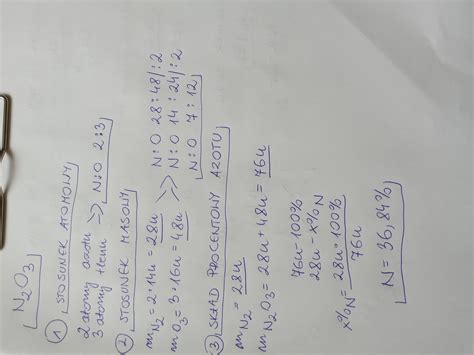 N₂O₃
1 STOSUNEK ATOMOWY
2 atomy azotu
3 atomy tlenu >> N:O 2:3
2 STOSUNEK MASOWY
mN₂ = 2·14u = 28u >> N:O 28:48/:2
mO₃ = 3·16u = 48u N:O 14:24/:2
N:O 7:12
3 SKŁAD PROCENTOWY AZOTU
mN₂ = 28u
mN₂O₃ = 28u + 48u = 76u
76u - 100%
28u - x%N
x%N = 28u · 100%
76u
N = 36,84%